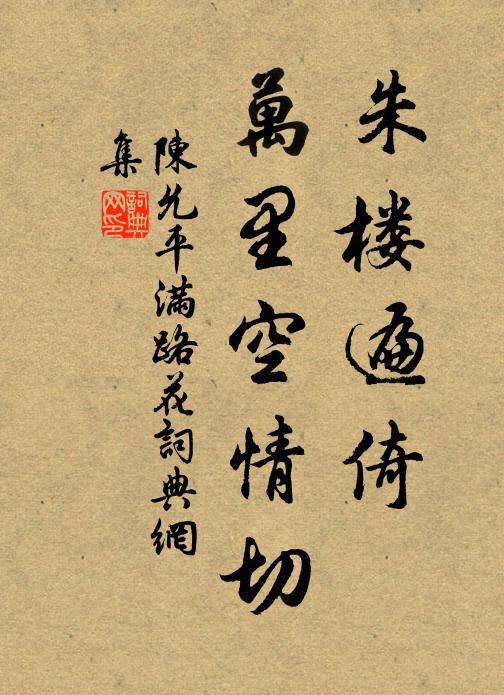 朱楼遍倚
萬里空情切
陳允平滿路花詞典網
集
詞典网印